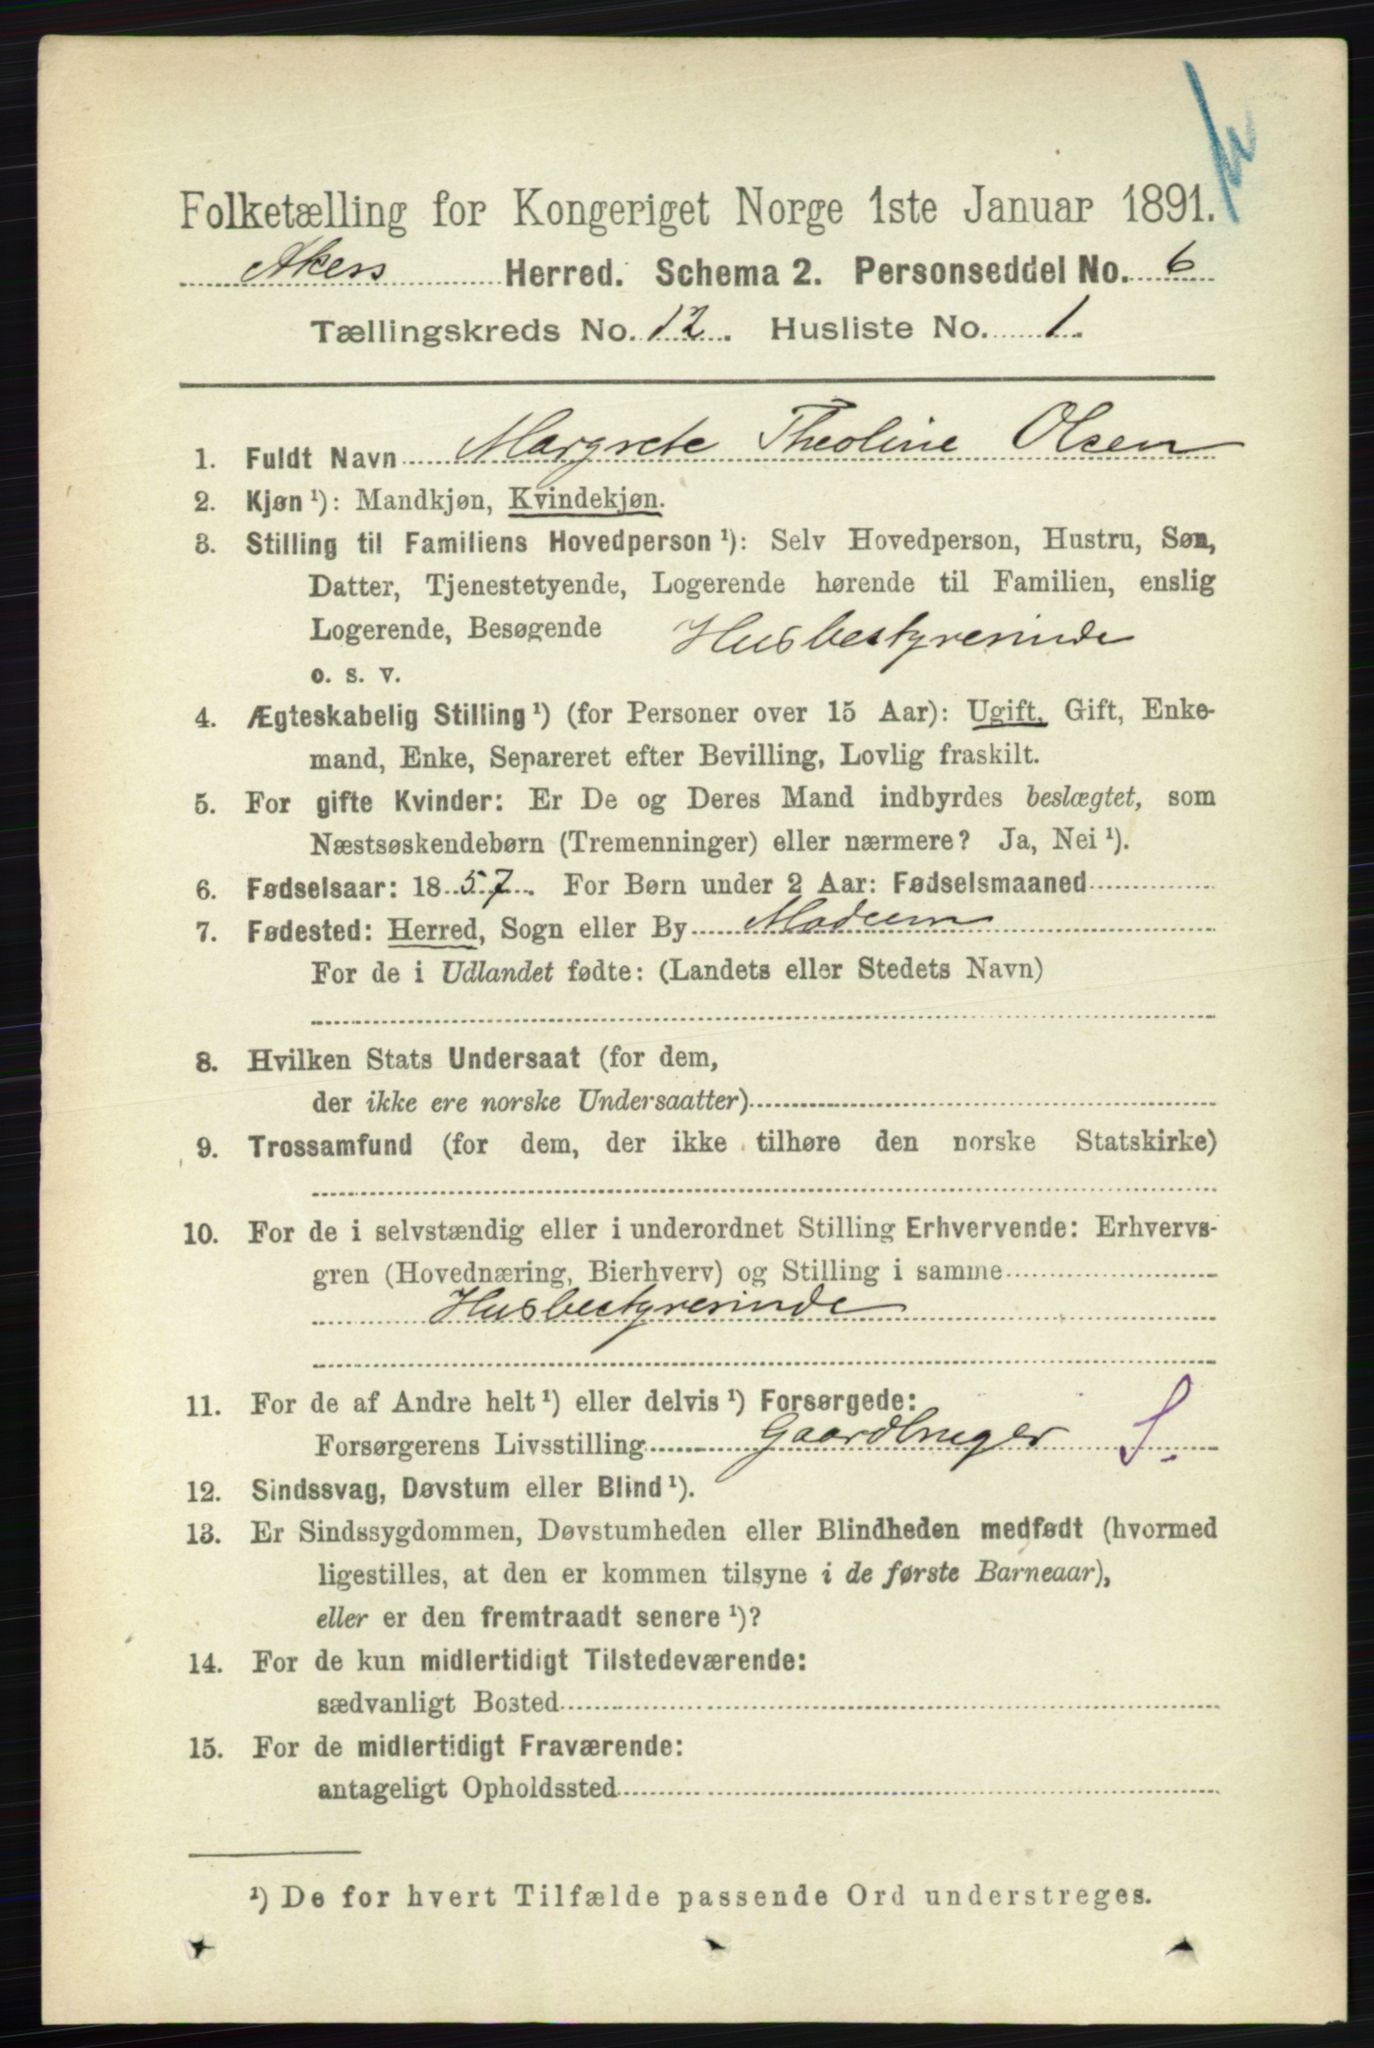 Folketælling for Kongeriget Norge 1ste Januar 1891.
Akers Herred. Schema 2. Personseddel No. 6
Tællingskreds No. 12. Husliste No. 1.
1. Fuldt Navn Margrete Theoline Olsen
2. Kjøn ¹): Mandkjøn, Kvindekjøn.
3. Stilling til Familiens Hovedperson ¹): Selv Hovedperson, Hustru, Søn,
Datter, Tjenestetyende, Logerende hørende til Familien, enslig
Logerende, Besøgende Husbestyrerinde
o. s. v.
4. Ægteskabelig Stilling ¹) (for Personer over 15 Aar): Ugift, Gift, Enke-
mand, Enke, Separeret efter Bevilling, Lovlig fraskilt.
5. For gifte Kvinder: Er De og Deres Mand indbyrdes beslægtet, som
Næstsøskendebørn (Tremenninger) eller nærmere? Ja, Nei ¹).
6. Fødselsaar: 1857. For Børn under 2 Aar: Fødselsmaaned
7. Fødested: Herred, Sogn eller By Modum
For de i Udlandet fødte: (Landets eller Stedets Navn)
8. Hvilken Stats Undersaat (for dem,
der ikke ere norske Undersaatter)
9. Trossamfund (for dem, der ikke tilhøre den norske Statskirke)
10. For de i selvstændig eller i underordnet Stilling Erhvervende: Erhvervs-
gren (Hovednæring, Bierhverv) og Stilling i samme
Husbestyrerinde
11. For de af Andre helt ¹) eller delvis ¹) Forsørgede:
Forsørgerens Livsstilling Gaardbruger S.
12. Sindssvag, Døvstum eller Blind ¹).
13. Er Sindssygdommen, Døvstumheden eller Blindheden medfødt (hvormed
ligestilles, at den er kommen tilsyne i de første Barneaar),
eller er den fremtraadt senere ¹)?
14. For de kun midlertidigt Tilstedeværende:
sædvanligt Bosted
15. For de midlertidigt Fraværende:
antageligt Opholdssted
¹) De for hvert Tilfælde passende Ord understreges.